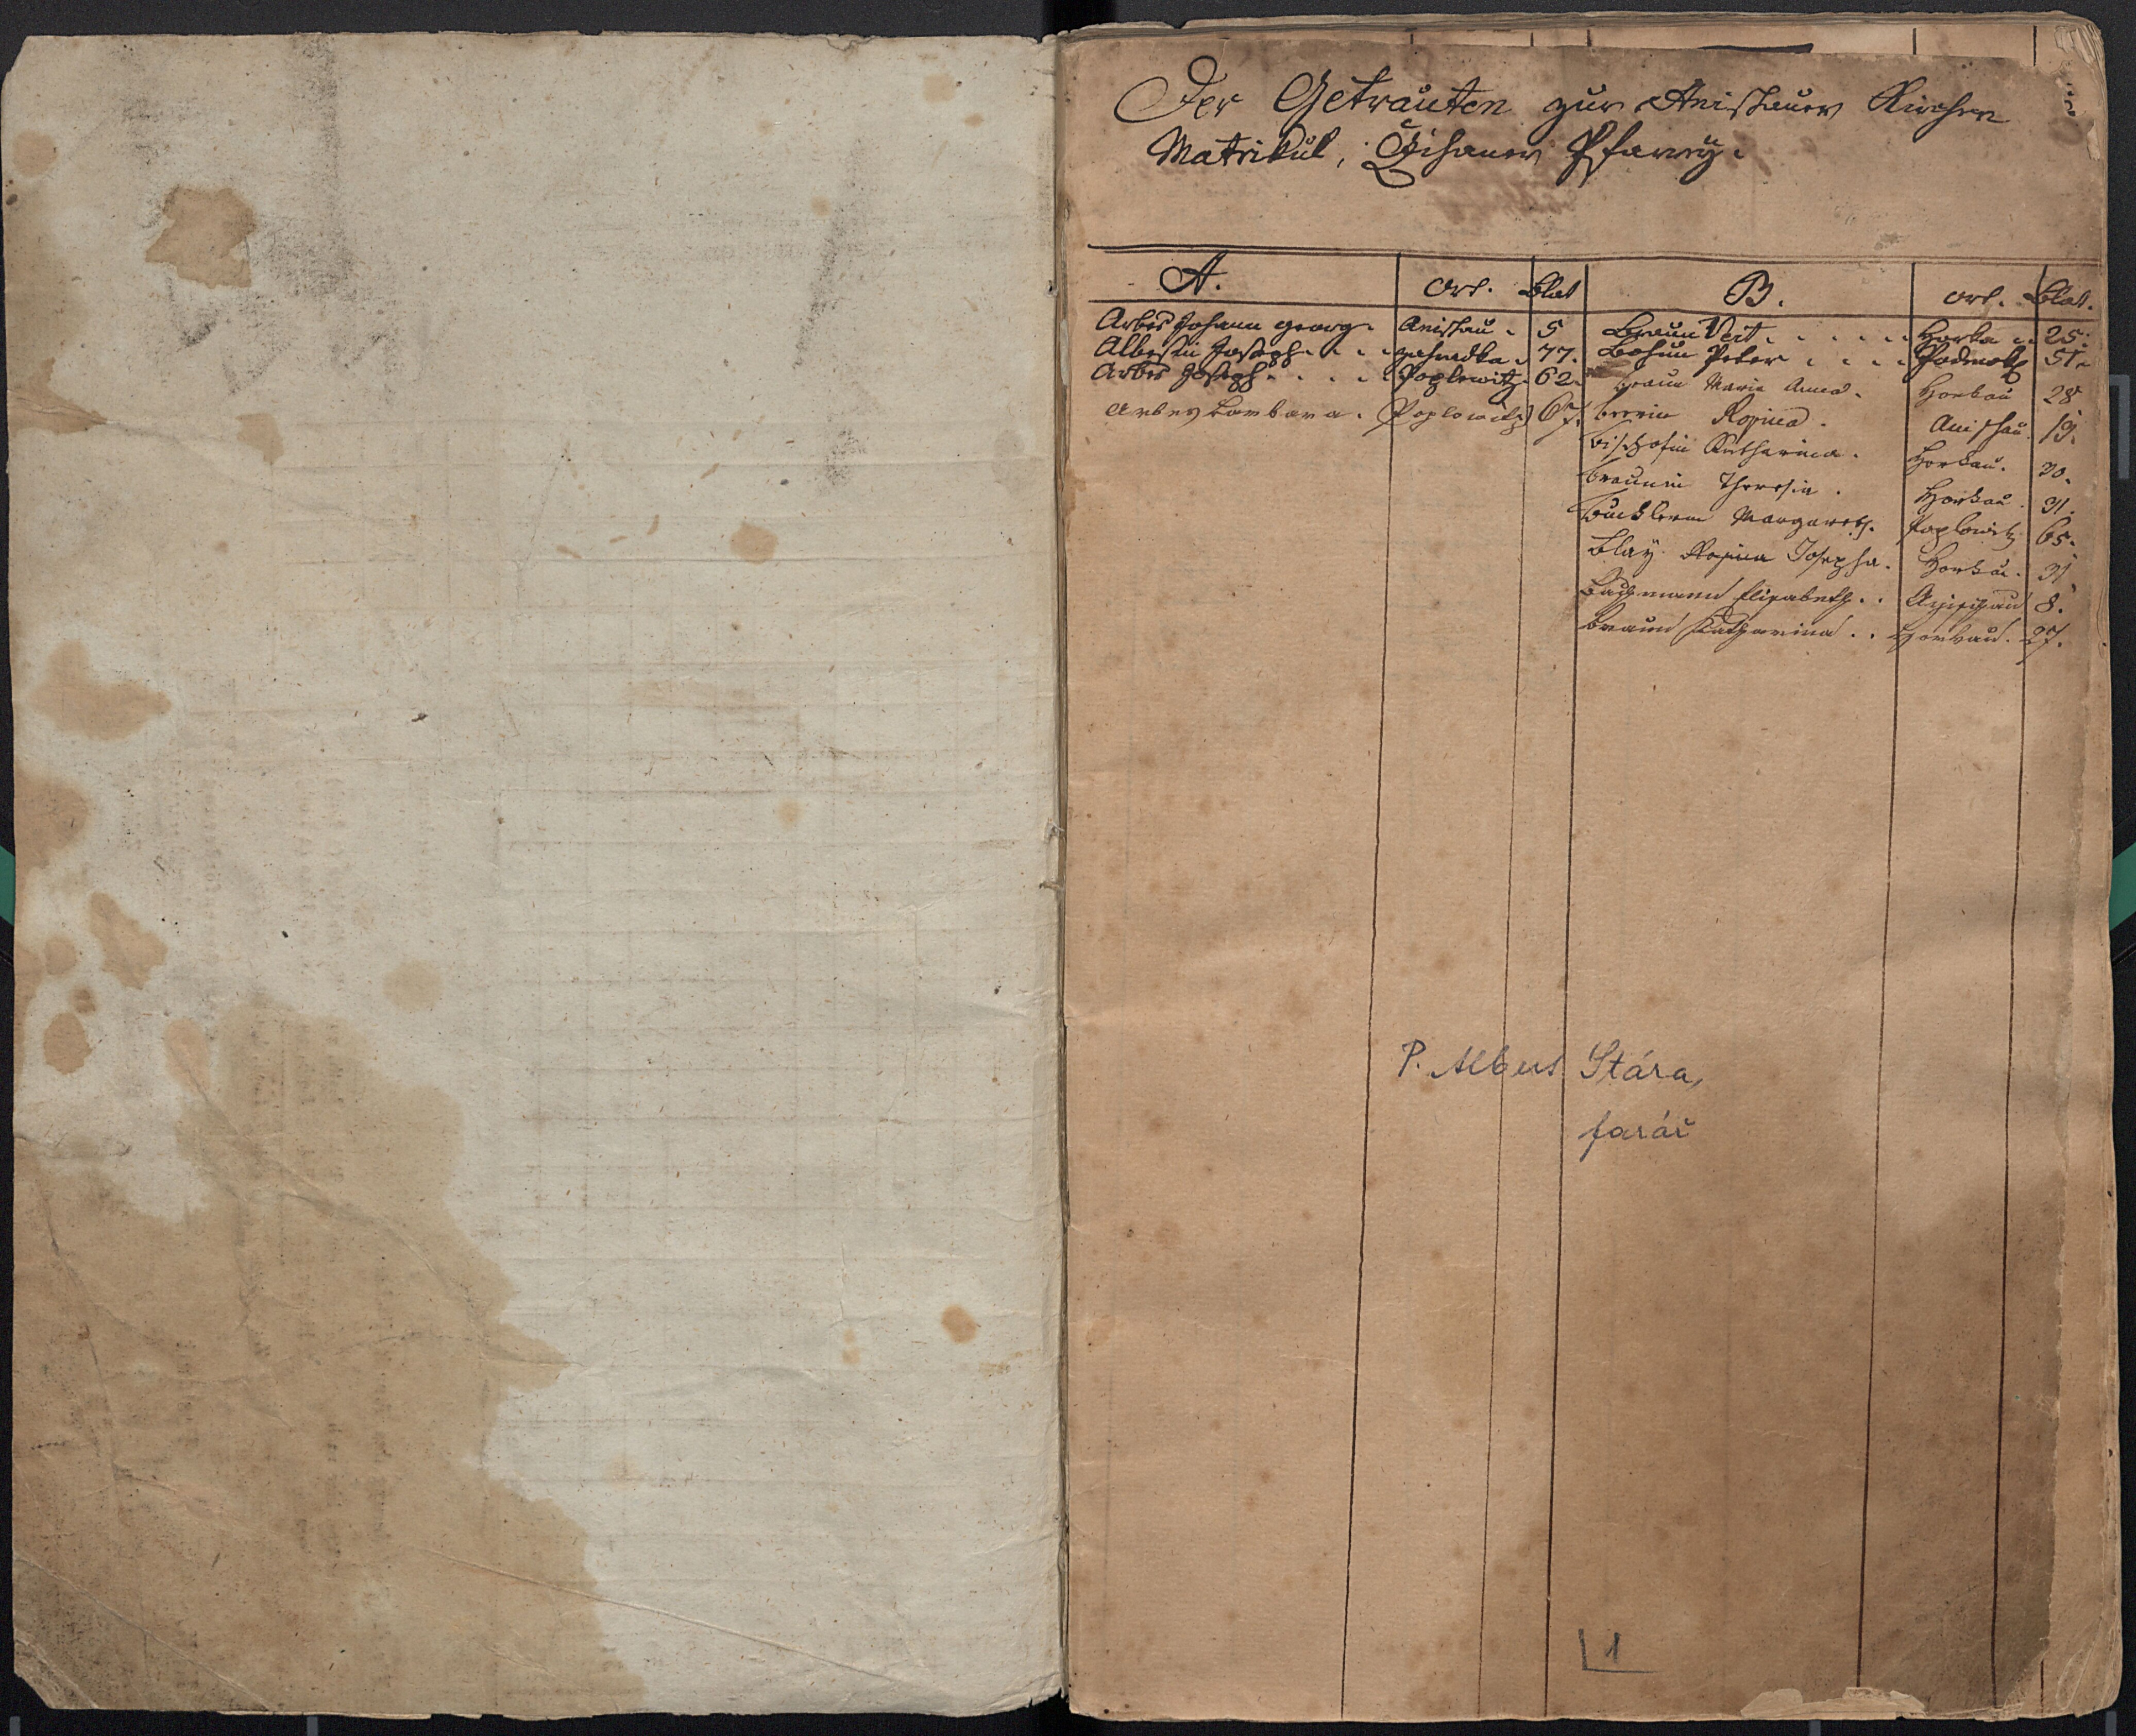 Der Getrauten zur Anischauer Kirchen
Matrikul, Pfarrey.
A. Ort. Blat B. Ort. Blat.
Arbes Johann Georg. Anischau. 5 Braun Veit. Horka 25.
Albertin Joseph. Zahradka. 77. Bohun Peter Podmokl 51.
Arbes Joseph. Poplowitz. 62. Braun Maria Anna. Horkau 28
Arbes Barbara. Poplowitz 67. Rosina. Anischau. 19.
Bischofin Katharina. Horkau. 30.
Braunin Theresia. Horkau. 31.
Margareth. Poplowitz 65.
Blay Rosina Josepha. Horkau. 31
Bachmann Elisabeth. Anischau 8.
Braun Katharina. Horkau. 27.
P. Albert Stára,
farář
1